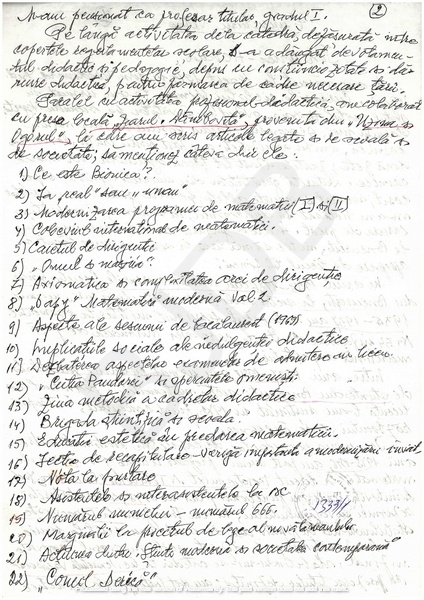 2
M-am pensionat ca profesor titular, gradul I.
Pe lângă activitatea de la catedră, desfășurată între
copertele regulamentelor școlare, s-a adăugat devotamen-
tul didactic și pedagogic, depus cu conștiinciozitate și dă-
ruire didactică, pentru formarea de cadre necesare țării.
Paralel cu activitatea profesional-didactică, am colaborat
cu presa locală, ziarul „Dâmbovița”, provenită din „Uzina și
Ogorul”, în care am scris articole legate și de școală și
de societate, să menționez câteva din ele:
1) Ce este Bionica?
2) În „real” sau „uman”
3) Modernizarea programei de matematici (I) și (II)
4) Colocviul internațional de matematici.
5) Caietul de diriginte
6) „Omul și mașina”.
7) Axiomatica și complexitatea orei de dirigenție
8) Papy „Matematica modernă” vol. 2.
9) Aspecte ale sesiunii de bacalaureat (1969)
10) Implicațiile sociale ale indulgenței didactice
11) Dezbaterea aspectelor examenelor de admitere în liceu
12) „Cutia Pandorei” și speranțele omenești
13) Ziua metodică a cadrelor didactice
14) Brigada științifică și școala.
15) Educația estetică în predarea matematicii.
16) Lecția de recapitulare – verigă importantă a modernizării învăț.
17) Nota la purtare
18) Asistențele și interasistențele la
19) Numărul numerelor – numărul 666.
1333/1
20) Marginalii la proiectul de lege al
21) „Știința modernă și societatea contemporană”
22) „Comod